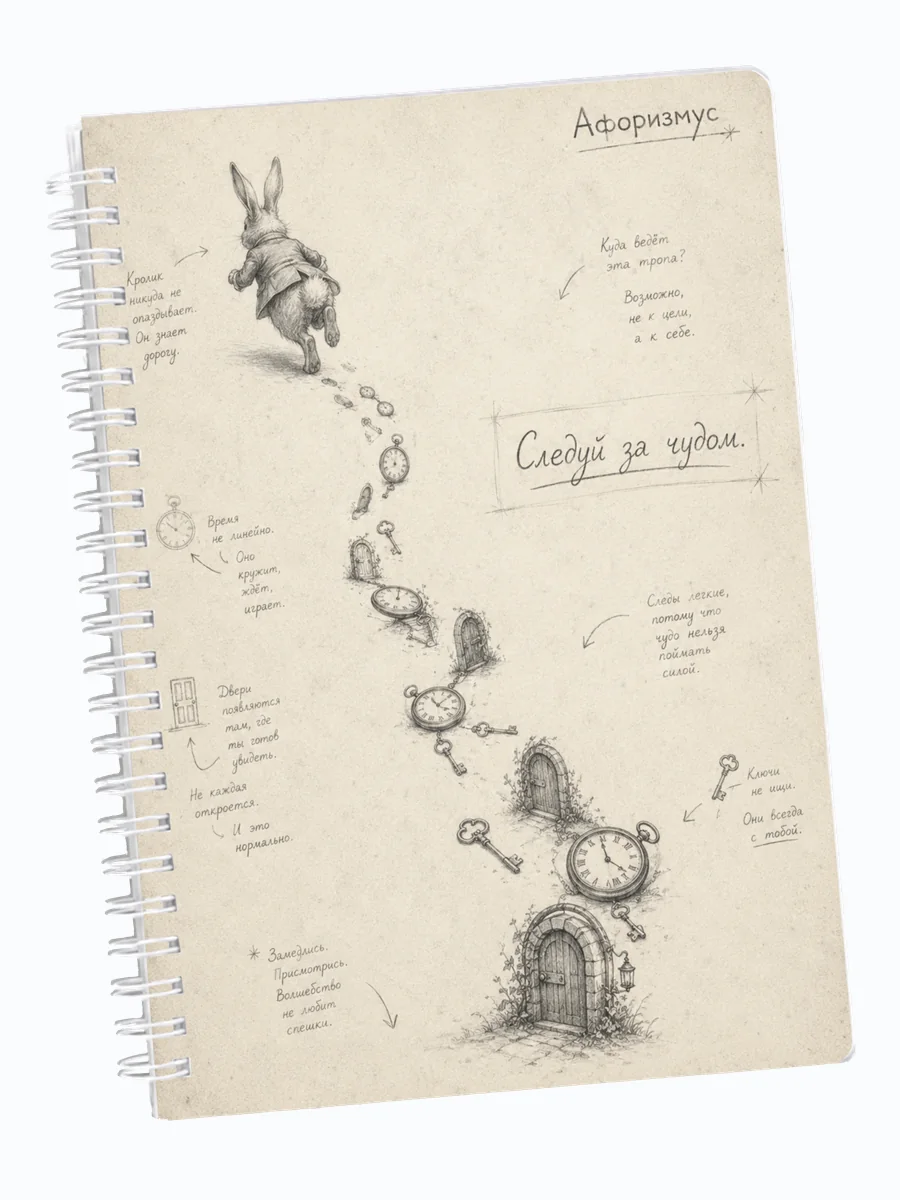 Афоризмус
Куда ведёт
эта тропа?
Возможно,
не к цели,
а к себе.
Кролик
никуда не
опаздывает.
Он знает
дорогу.
Следуй за чудом.
Время
не линейно.
Оно
кружит,
ждёт,
играет.
Следы легкие,
потому что
чудо нельзя
поймать
силой.
Двери
появляются
там, где
ты готов
увидеть.
Не каждая
откроется.
И это
нормально.
Ключи
не ищи.
Они всегда
с тобой.
* Замедлись.
Присмотрись.
Волшебство
не любит
спешки.